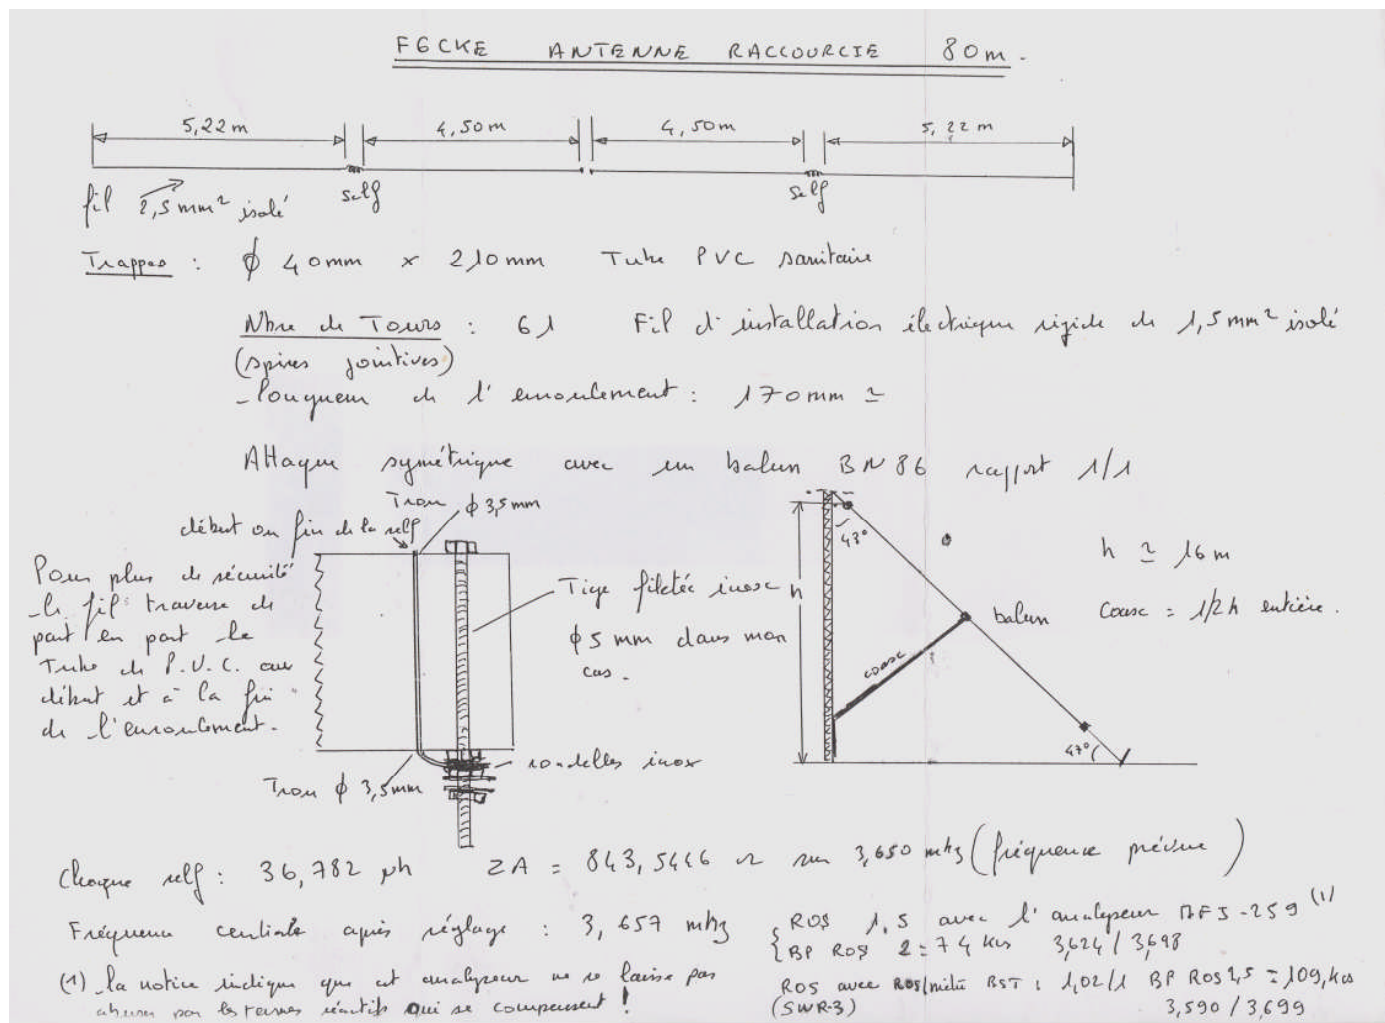 F6CKE ANTENNE RACCOURCIE 80m.
5,22m 4,50m 4,50m 5,22m
self self
fil 2,5mm² isolé
Trappes : ϕ 40mm x 210mm Tube PVC sanitaire
Nbre de Tours : 61 Fil d'installation électrique rigide de 1,5mm² isolé
(spires jointives)
longueur de l'enroulement : 170mm ≃
Attaque symétrique avec un balun BN86 rapport 1/1
Trou ϕ 3,5mm
début ou fin de la self
43°
h ≃ 16m
Pour plus de sécurité
le fil traverse de
part en part le
Tube de P.V.C. au
début et à la fin
de l'enroulement.
Tige filetée inox
ϕ5mm dans mon
cas.
h
balun
coax = 1/2h entière.
coax
47°
rondelles inox
Trou ϕ 3,5mm
Chaque self : 36,782 µh ZA = 843,5446 Ω sur 3,650 mhz (fréquence prévue)
Fréquence centrale après réglage : 3,657 mhz
ROS 1,5 avec l'analyseur MFJ-259 (1)
BP ROS 2 = 74 Khs 3,624/3,698
(1) la notice indique que cet analyseur ne se laisse pas
abuser par les termes réactifs qui se compensent !
ROS avec ROS/mètre RST : 1,02/1 BP ROS 1,5 = 109,Khs
(SWR-3) 3,590/3,699